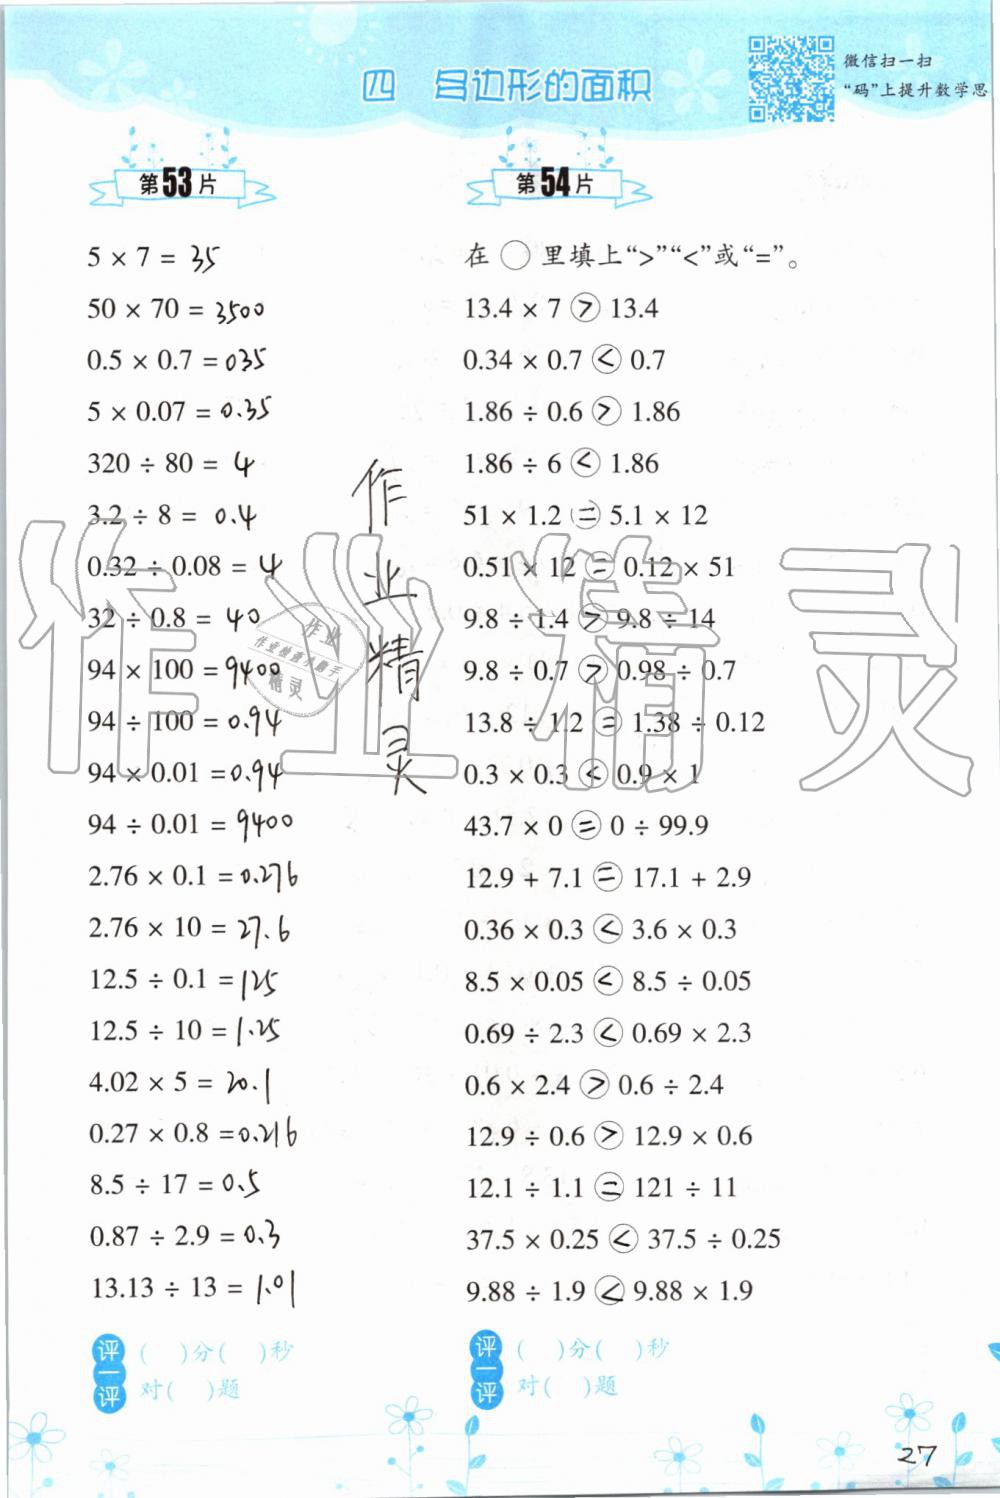 四 多边形的面积
微信扫一扫
“码”上提升数学思
第53片
5 × 7 = 35
50 × 70 = 3500
0.5 × 0.7 = 035
5 × 0.07 = 0.35
320 ÷ 80 = 4
3.2 ÷ 8 = 0.4
0.32 ÷ 0.08 = 4
32 ÷ 0.8 = 40
94 × 100 = 9400
94 ÷ 100 = 0.94
94 × 0.01 = 0.94
94 ÷ 0.01 = 9400
2.76 × 0.1 = 0.276
2.76 × 10 = 27.6
12.5 ÷ 0.1 = 125
12.5 ÷ 10 = 1.25
4.02 × 5 = 20.1
0.27 × 0.8 = 0.216
8.5 ÷ 17 = 0.5
0.87 ÷ 2.9 = 0.3
13.13 ÷ 13 = 1.01
评一评
( )分( )秒
对( )题
第54片
在 ○ 里填上“>”“<”或“=”。
13.4 × 7 > 13.4
0.34 × 0.7 < 0.7
1.86 ÷ 0.6 > 1.86
1.86 ÷ 6 < 1.86
51 × 1.2 = 5.1 × 12
0.51 × 12 = 0.12 × 51
9.8 ÷ 1.4 > 9.8 ÷ 14
9.8 ÷ 0.7 > 0.98 ÷ 0.7
13.8 ÷ 1.2 = 1.38 ÷ 0.12
0.3 × 0.3 < 0.9 × 1
43.7 × 0 = 0 ÷ 99.9
12.9 + 7.1 = 17.1 + 2.9
0.36 × 0.3 < 3.6 × 0.3
8.5 × 0.05 < 8.5 ÷ 0.05
0.69 ÷ 2.3 < 0.69 × 2.3
0.6 × 2.4 > 0.6 ÷ 2.4
12.9 ÷ 0.6 > 12.9 × 0.6
12.1 ÷ 1.1 = 121 ÷ 11
37.5 × 0.25 < 37.5 ÷ 0.25
9.88 ÷ 1.9 < 9.88 × 1.9
评一评
( )分( )秒
对( )题
作业精灵
作业精灵
作业
作业检查小助手
精灵
27